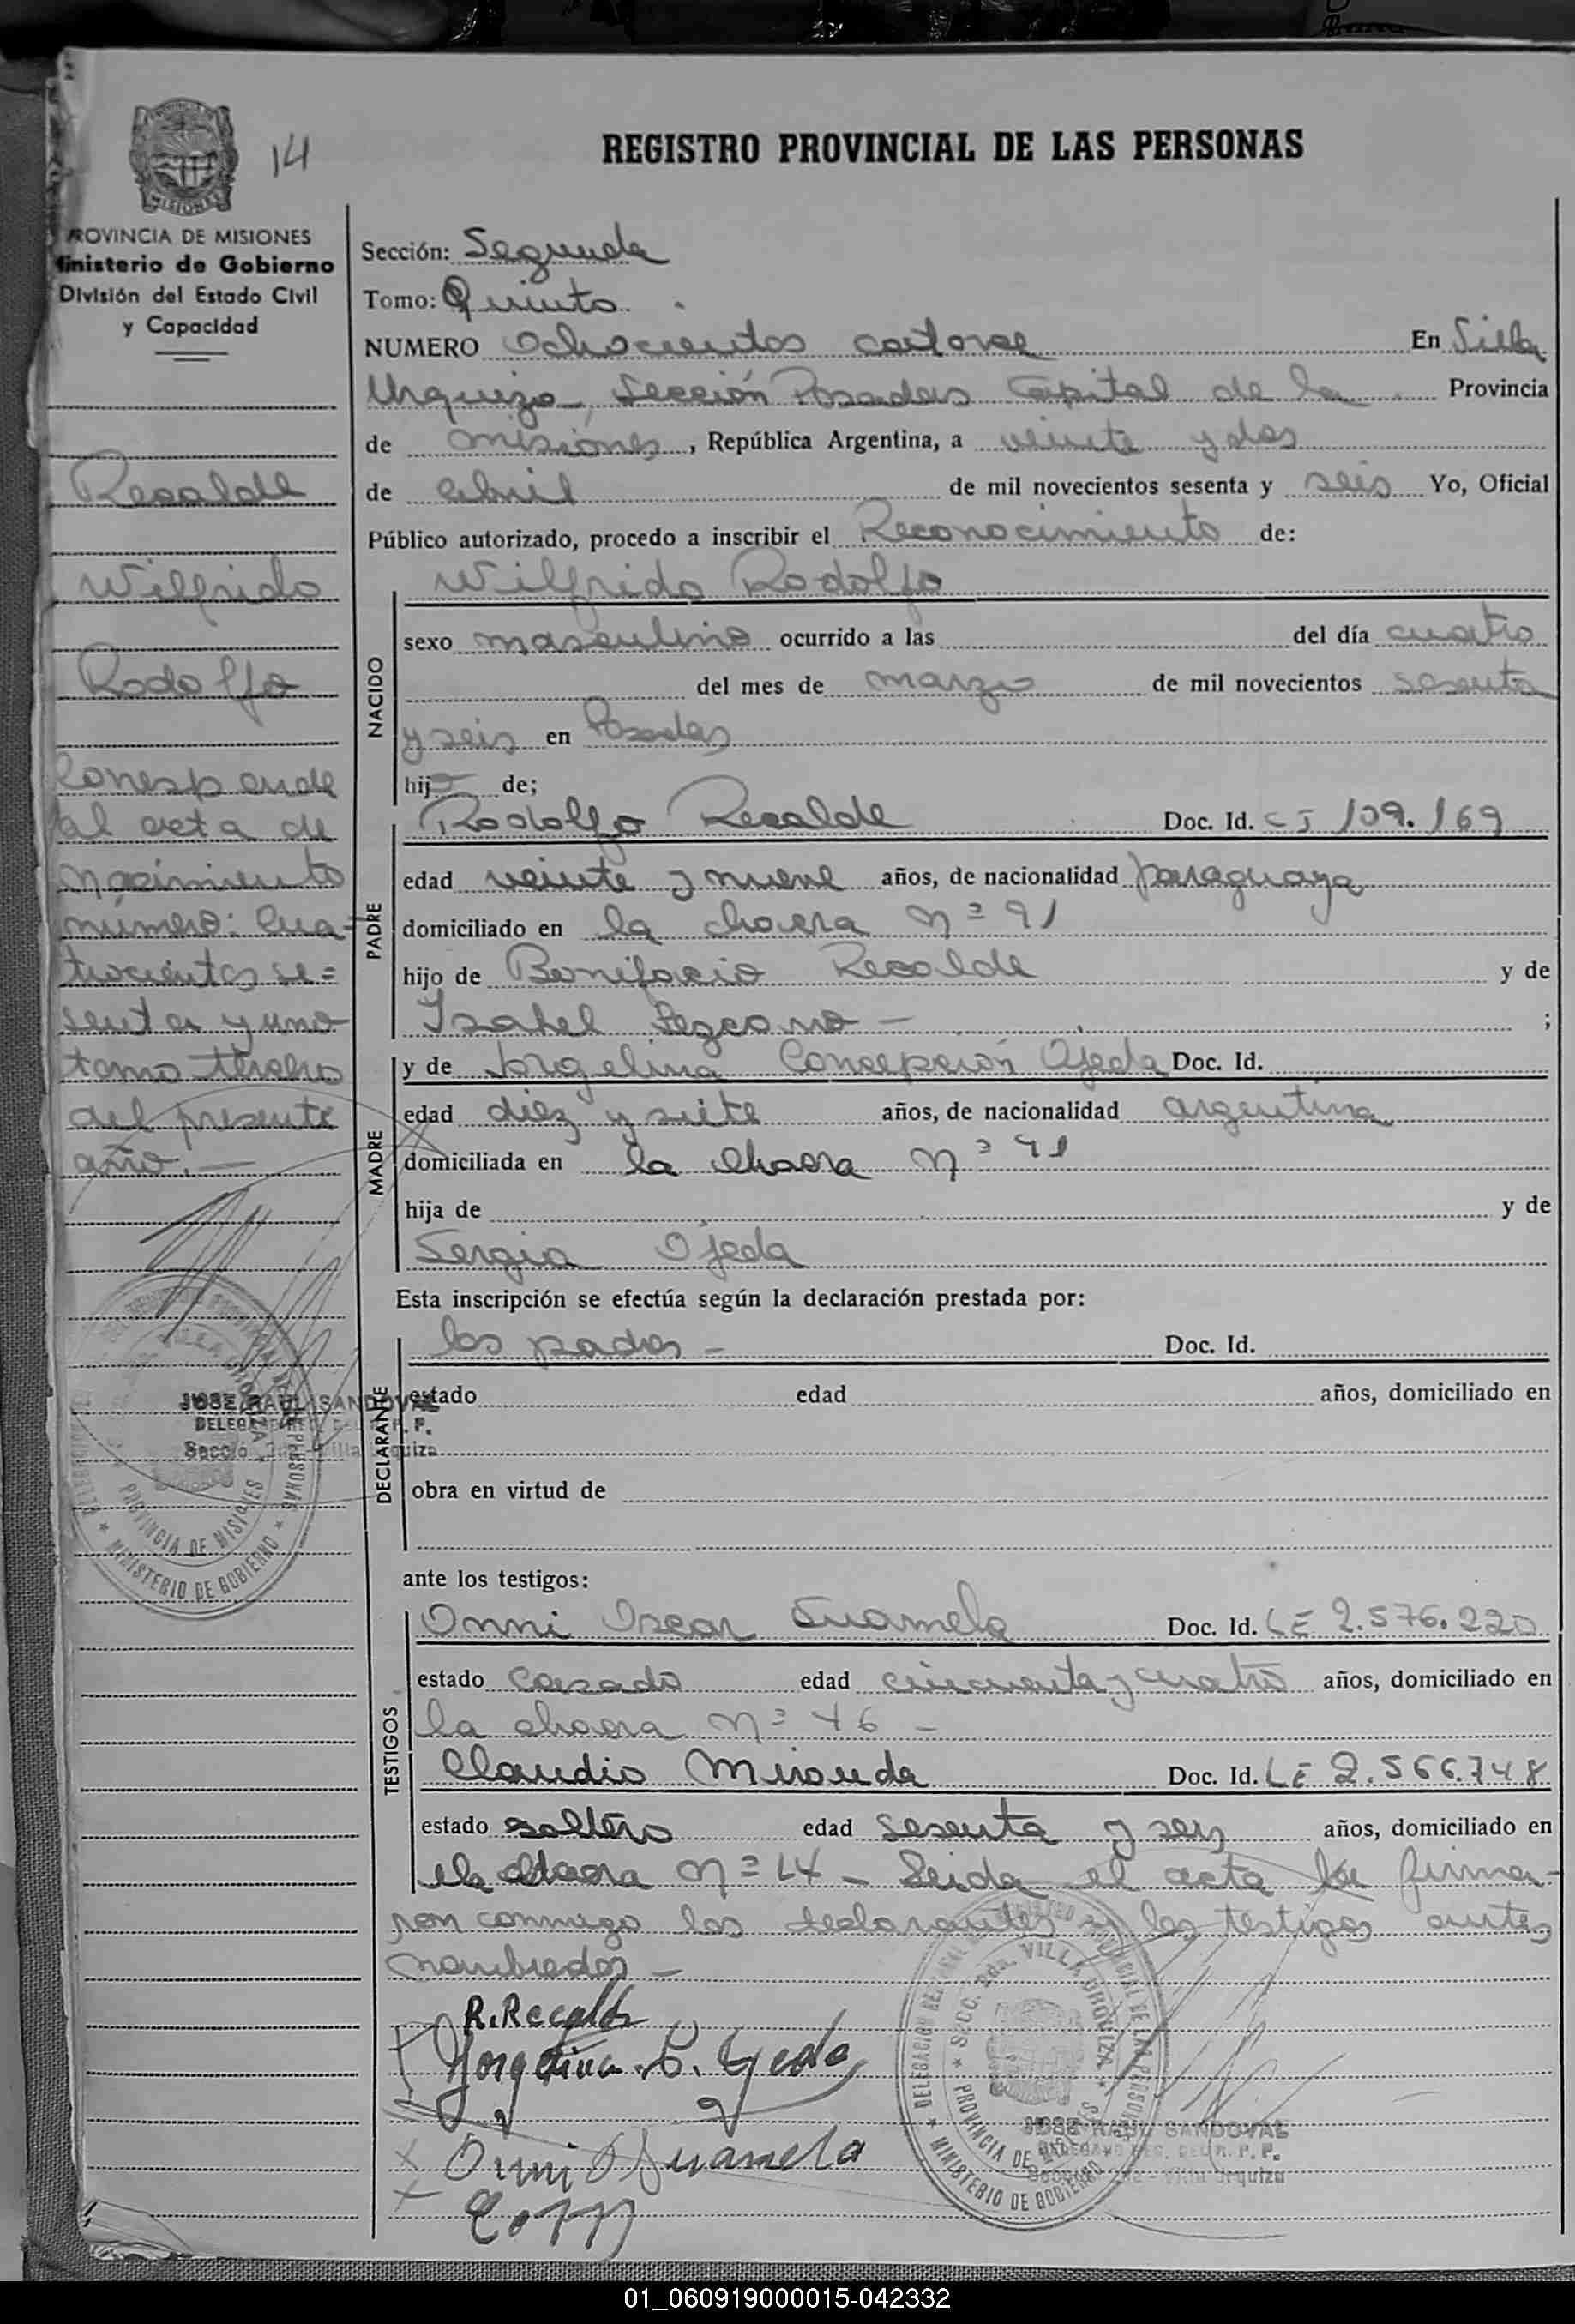 14
REGISTRO PROVINCIAL DE LAS PERSONAS
MISIONES
PROVINCIA DE MISIONES
Ministerio de Gobierno
División del Estado Civil
y Capacidad
Recalde
Wilfrido
Rodolfo
Corresponde
al acta de
nacimiento
número: Cua-
trocientos se=
senta y uno
tomo tercero
del presente
año.—
JOSE RAUL SANDOVAL
Sección: Segunda
Tomo: Quinto
NUMERO Ochocientos catorce En Villa
Urquiza, Sección Posadas Capital de la Provincia
de Misiones, República Argentina, a veinte y dos
de abril de mil novecientos sesenta y seis Yo, Oficial
Público autorizado, procedo a inscribir el Reconocimiento de:
NACIDO
Wilfrido Rodolfo
sexo masculino ocurrido a las del día cuatro
del mes de marzo de mil novecientos sesenta
y seis en Posadas
hijo de;
PADRE
Rodolfo Recalde Doc. Id. CI 109.169
edad veinte y nueve años, de nacionalidad paraguaya
domiciliado en la chacra Nº 91
hijo de Bonifacio Recalde y de
Isabel Lezcano — ;
MADRE
y de Jorgelina Concepción Ojeda Doc. Id.
edad diez y siete años, de nacionalidad argentina
domiciliada en la chacra Nº 91
hija de y de
Sergia Ojeda
Esta inscripción se efectúa según la declaración prestada por:
DECLARANTE
los padres — Doc. Id.
estado edad años, domiciliado en
obra en virtud de
ante los testigos:
TESTIGOS
Onni Oscar Suamela Doc. Id. LE 2.576.220
estado casado edad cincuenta y cuatro años, domiciliado en
la chacra Nº 46 —
Claudio Miranda Doc. Id. LE 2.566.748
estado soltero edad sesenta y seis años, domiciliado en
la chacra Nº 14 — Leida el acta la firma-
ron conmigo los declarantes y los testigos antes
nombrados —
R. Recalde
Jorgelina C. Ojeda
Onni O Suamela
DELEGACION REGISTRO PROVINCIAL DE LAS PERSONAS
SECC. 2da. VILLA URQUIZA
PROVINCIA DE MISIONES
MINISTERIO DE GOBIERNO
JOSE RAUL SANDOVAL
Sección 2da - Villa Urquiza
01_060919000015-042332